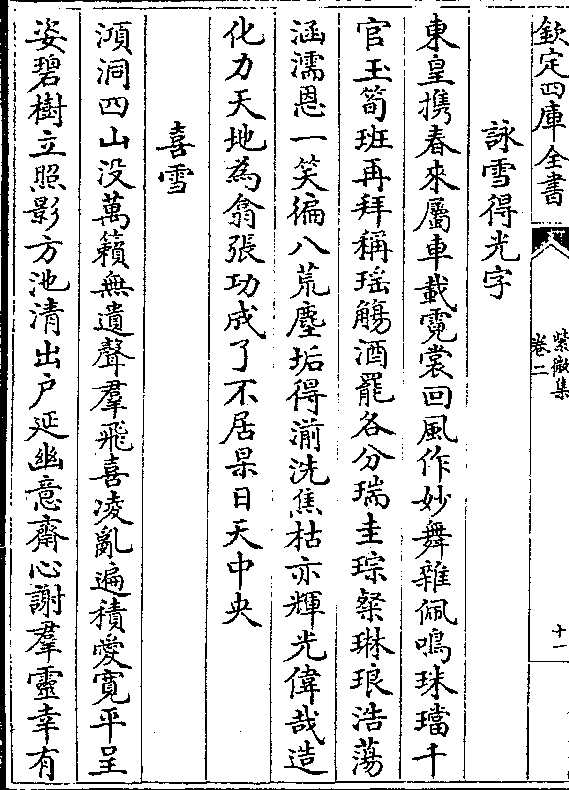 欽定四庫全書
紫微集
卷二
十一
詠雪得光字
東皇攜春來屬車載霓裳回風作妙舞雜佩鳴珠璫千
官玉筍班再拜稱瑶觴酒罷各分瑞圭琮粲琳琅浩蕩
涵濡恩一笑徧八荒塵垢得湔洗焦枯亦輝光偉哉造
化力天地為翕張功成了不居杲日天中央
喜雪
澒洞四山没萬籟無遺聲羣飛喜凌亂遍積愛寛平呈
姿碧樹立照影方池清出户延幽意齋心謝羣靈幸有